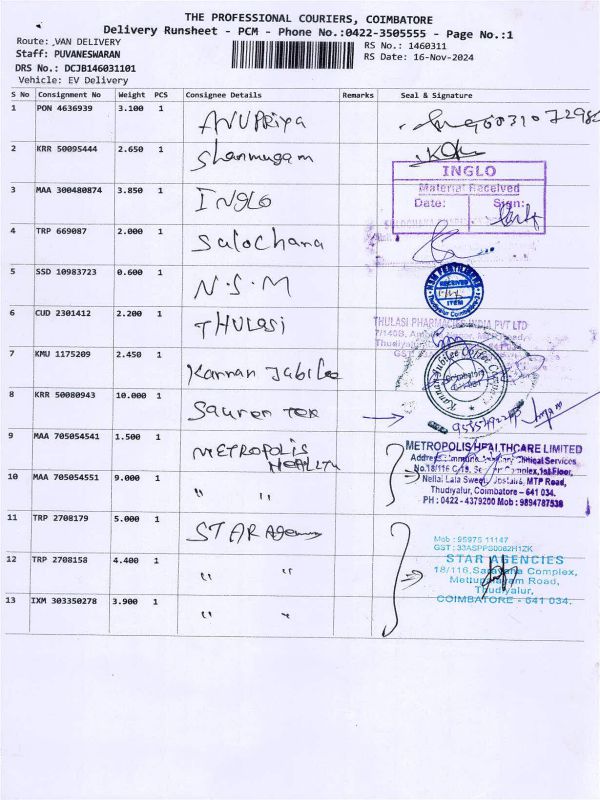 THE PROFESSIONAL COURIERS, COIMBATORE
Delivery Runsheet - PCM - Phone No.:0422-3505555 - Page No.:1
Route: VAN DELIVERY
RS No.: 1460311
Staff: PUVANESWARAN
RS Date: 16-Nov-2024
DRS No.: DCJB146031101
Vehicle: EV Delivery
S No Consignment No Weight PCS Consignee Details Remarks Seal & Signature
1 PON 4636939 3.100 1 ANUPRIYA
2 KRR 50095444 2.650 1 Shanmugam
INGLO
Material Received
Date: Sign:
3 MAA 300480874 3.850 1 INGLO
4 TRP 669087 2.000 1 Salochana
5 SSD 10983723 0.600 1 N.S.M
RECEIVED
ITEM
6 CUD 2301412 2.200 1 THULASI
THULASI PHARMACIES INDIA PVT LTD
7 KMU 1175209 2.450 1 Kannan Jubilee
Kannan Jubilee Coffee Company
8 KRR 50080943 10.000 1
9 MAA 705054541 1.500 1 METROPOLIS HEALTH
METROPOLIS HEALTHCARE LIMITED
Nellai Lala Sweet MTP Road,
Thudiyalur, Coimbatore - 641 034.
PH : 0422 - 4379200 Mob : 9894787538
10 MAA 705054551 9.000 1 " "
11 TRP 2708179 5.000 1 STAR Agency
Mob : 95975 11147
GST : 33ASPPS0082H1ZK
STAR AGENCIES
12 TRP 2708158 4.400 1 " "
18/116, Saravana Complex,
Mettupalayam Road,
Thudiyalur,
COIMBATORE - 641 034.
13 IXM 303350278 3.900 1 " "